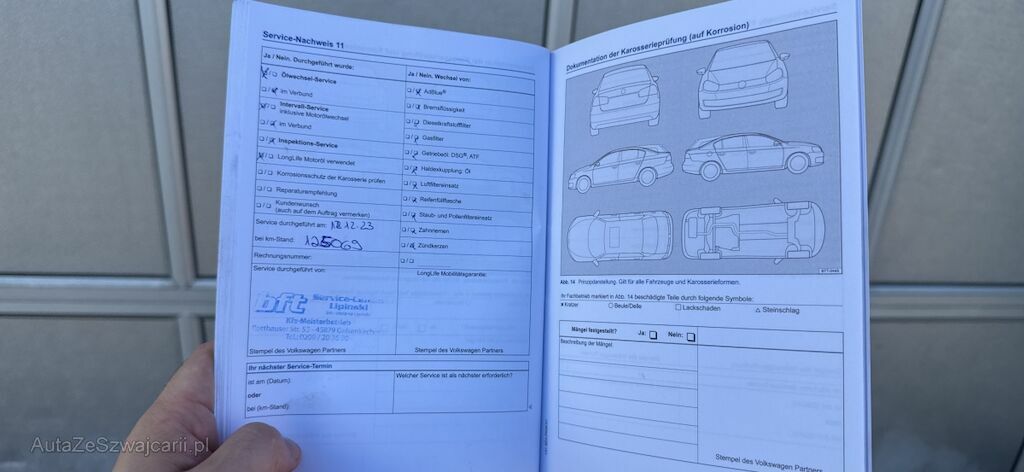 Service-Nachweis 11
Ja / Nein. Durchgeführt wurde:
Ölwechsel-Service
im Verbund
Intervall-Service
inklusive Motorölwechsel
im Verbund
Inspektions-Service
LongLife Motoröl verwendet
Korrosionsschutz der Karosserie prüfen
Reparaturempfehlung
Kundenwunsch
(auch auf dem Auftrag vermerken)
Service durchgeführt am: 12.23
bei km-Stand: 125069
Rechnungsnummer:
Service durchgeführt von:
bft Service-
Lipinski
Kfz-Meisterbetrieb
Stempel des Volkswagen Partners
Ja / Nein. Wechsel von:
AdBlue®
Bremsflüssigkeit
Dieselkraftstofffilter
Gasfilter
Getriebeöl: DSG®, ATF
Haldexkupplung: Öl
Luftfiltereinsatz
Reifenfüllflasche
Staub- und Pollenfiltereinsatz
Zahnriemen
Zündkerzen
LongLife Mobilitätsgarantie:
Stempel des Volkswagen Partners
Ihr nächster Service-Termin
ist am (Datum):
oder
bei (km-Stand):
Welcher Service ist als nächster erforderlich?
Dokumentation der Karosserieprüfung (auf Korrosion)
Abb. 14 Prinzipdarstellung. Gilt für alle Fahrzeuge und Karosserieformen.
Ihr Fachbetrieb markiert in Abb. 14 beschädigte Teile durch folgende Symbole:
Kratzer
Beule/Delle
Lackschaden
Steinschlag
Mängel festgestellt? Ja: Nein:
Beschreibung der Mängel:
Stempel des Volkswagen Partners
AutaZeSzwajcarii.pl